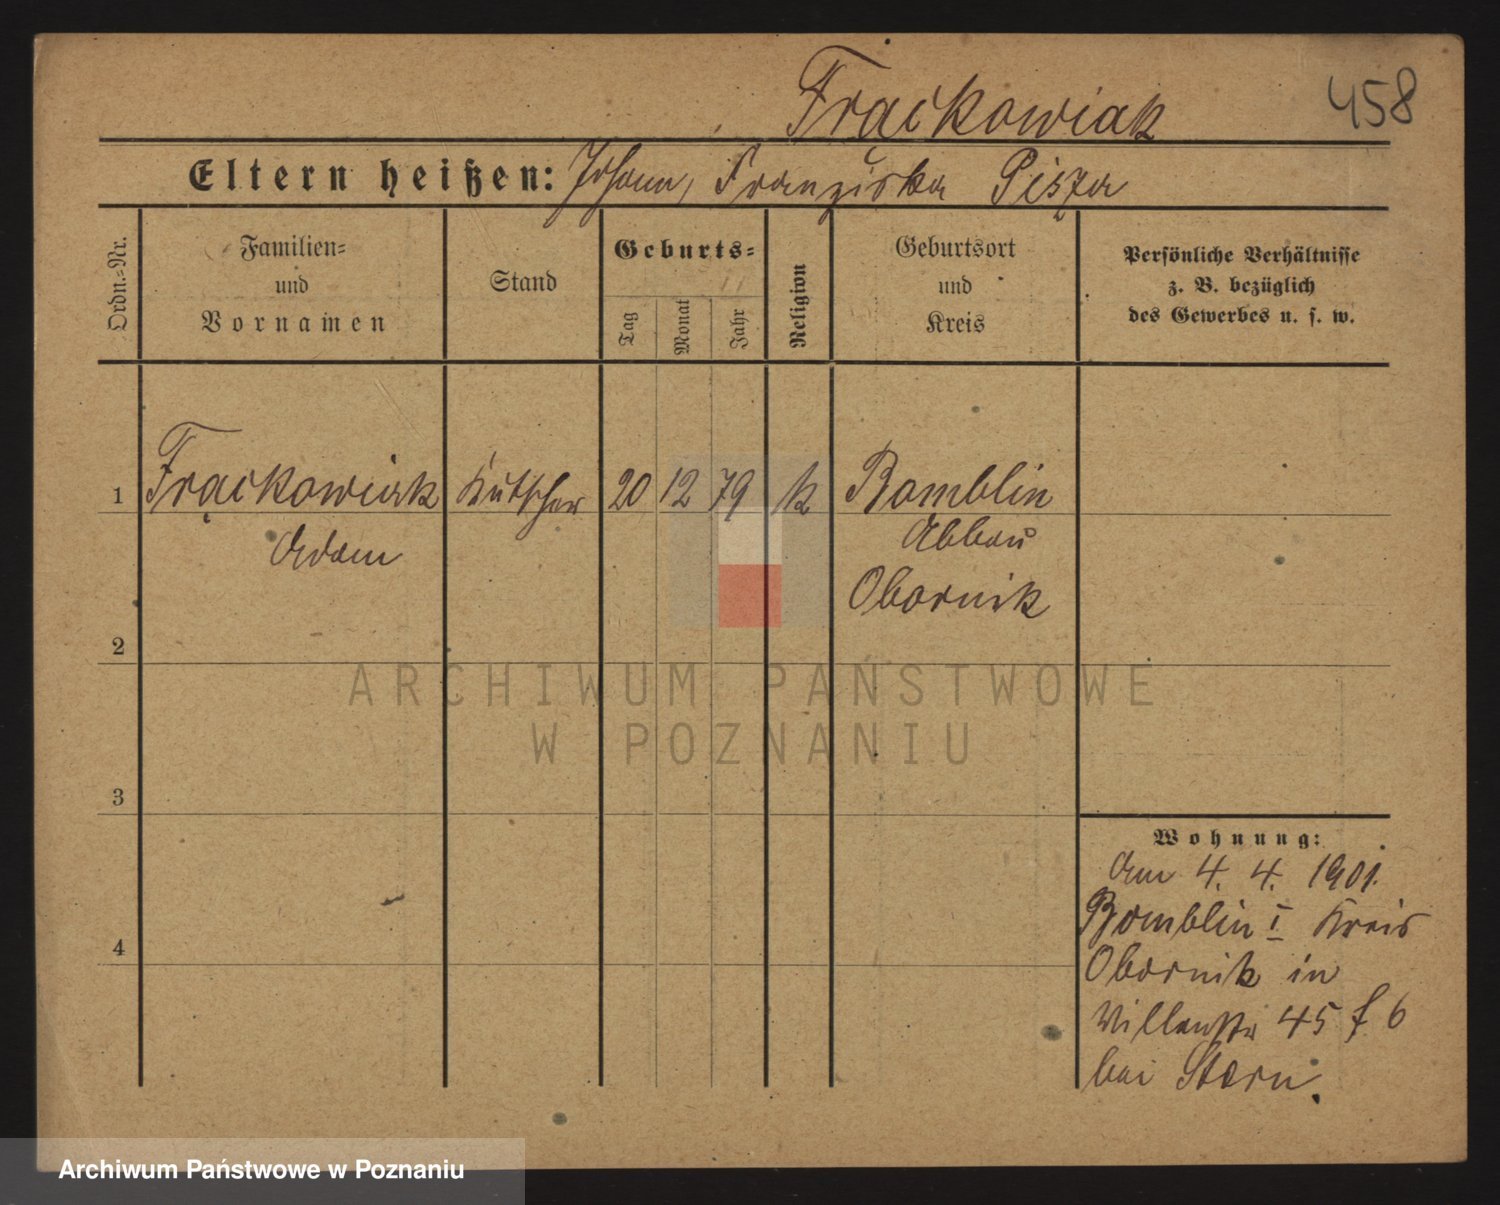 Frąckowiak 458
Eltern heißen: Johann, Franziska Pisza
Ordn.-Nr.
Familien-
und
Vornamen
Stand
Geburts-
Tag
Monat
Jahr
Religion
Geburtsort
und
Kreis
Persönliche Verhältnisse
z. B. bezüglich
des Gewerbes u. s. w.
1 Frąckowiak Kutscher 20 12 79 k Bomblin
Adam Abbau
Obornik
2
ARCHIWUM PAŃSTWOWE
W POZNANIU
3
Wohnung:
Am 4. 4. 1901.
Bomblin I Kreis
4
Obornik in
45 f 6
bei Stern.
Archiwum Państwowe w Poznaniu